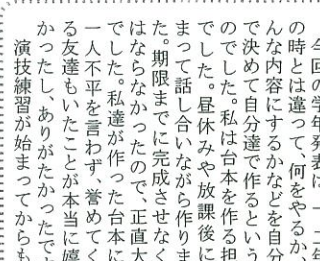 今回の学年発表は、一、二年
の時とは違って、何をやるか、
んな内容にするかなどを自分
で決めて自分達で作るという
のでした。私は台本を作る担
でした。昼休みや放課後に
まって話し合いながら作りま
た。期限までに完成させなく
はならなかったので、正直大
でした。私達が作った台本に
一人不平を言わず、誉めてく
る友達もいたことが本当に嬉
かったし、ありがたかったで
演技練習が始まってからも